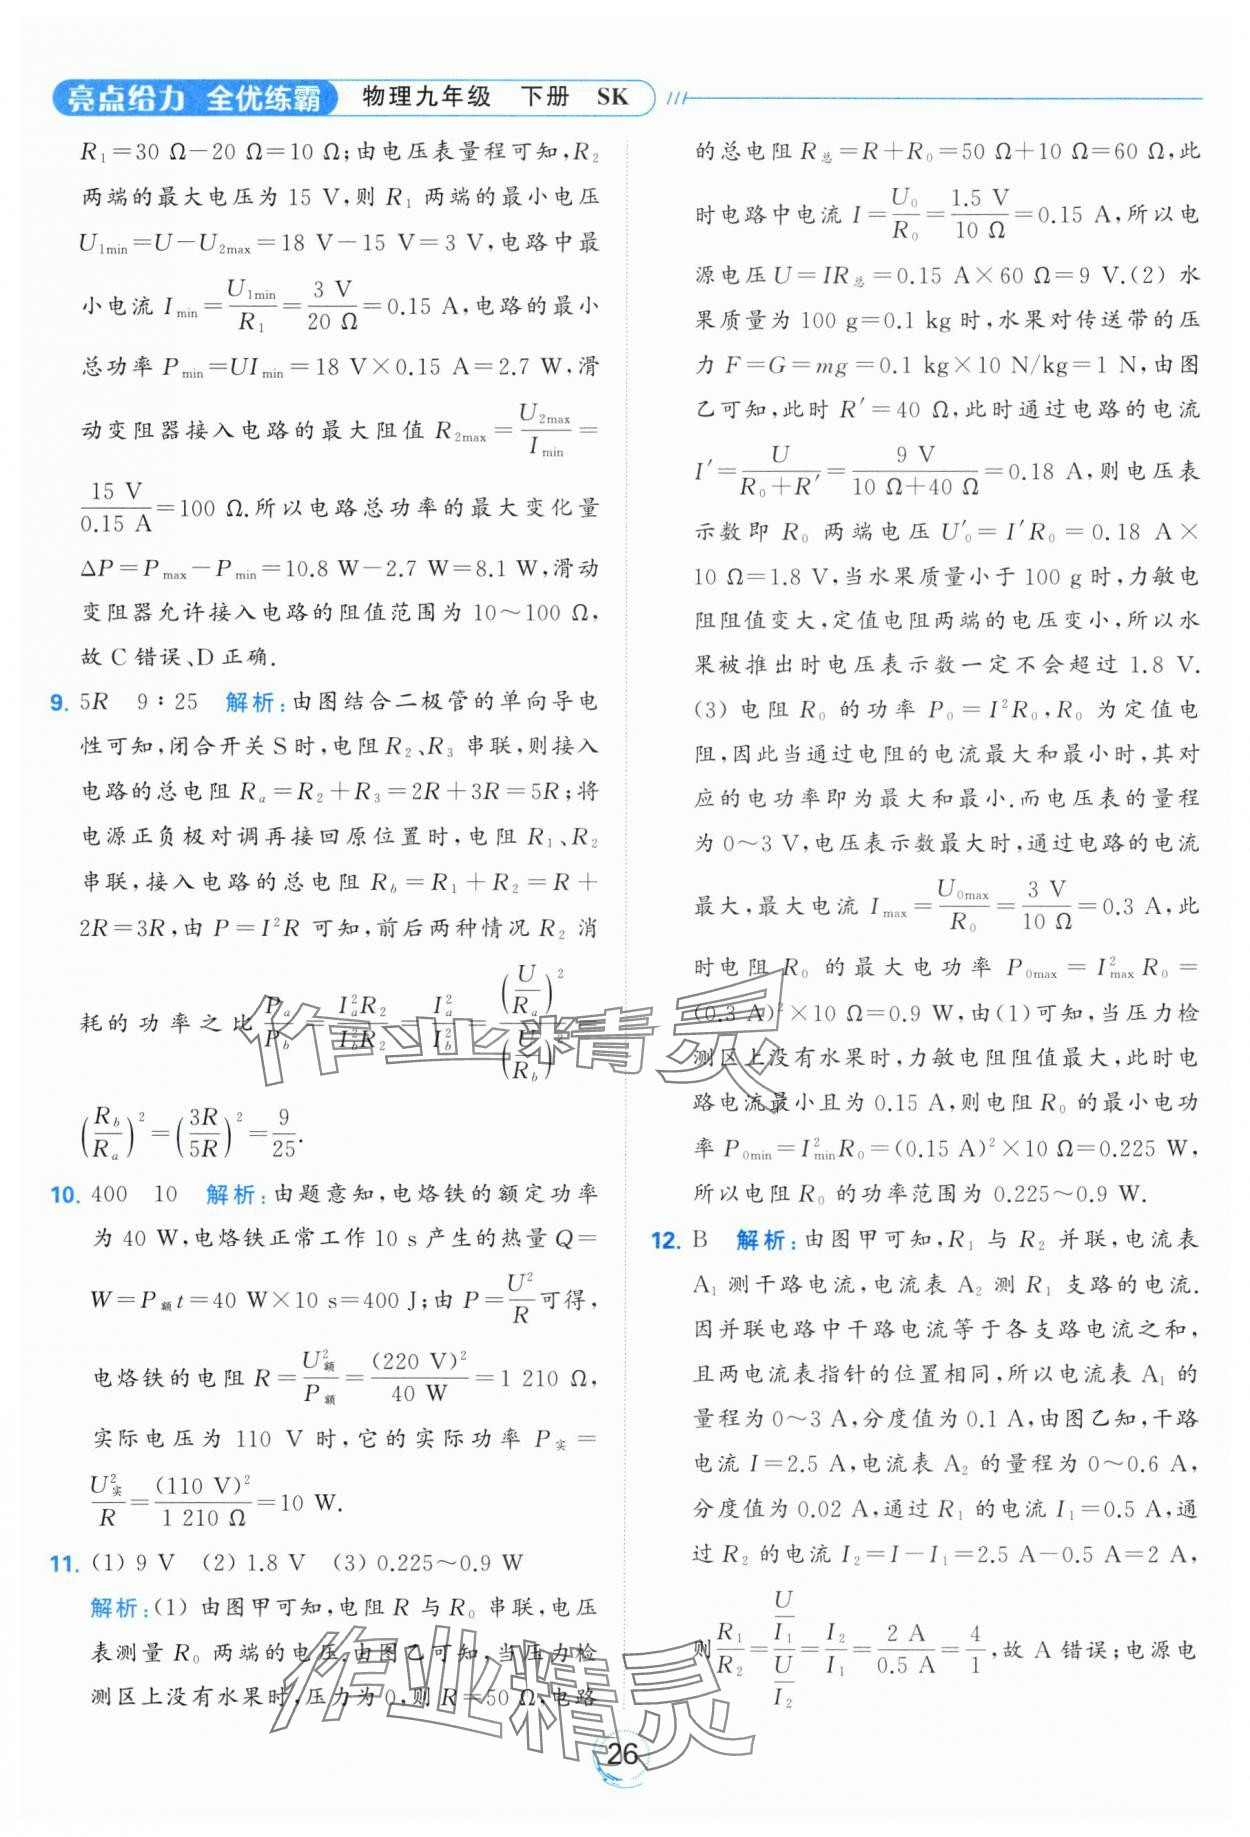 亮点给力 全优练霸 物理九年级 下册 SK
R₁=30 Ω−20 Ω=10 Ω;由电压表量程可知,R₂
两端的最大电压为 15 V,则 R₁ 两端的最小电压
U₁min=U−U₂max=18 V−15 V=3 V,电路中最
小电流 Imin=U₁min/R₁=3 V/20 Ω=0.15 A,电路的最小
总功率 Pmin=UImin=18 V×0.15 A=2.7 W,滑
动变阻器接入电路的最大阻值 R₂max=U₂max/Imin=
15 V/0.15 A=100 Ω.所以电路总功率的最大变化量
ΔP=Pmax−Pmin=10.8 W−2.7 W=8.1 W,滑动
变阻器允许接入电路的阻值范围为 10～100 Ω,
故 C 错误、D 正确.
9. 5R 9∶25 解析:由图结合二极管的单向导电
性可知,闭合开关 S 时,电阻 R₂、R₃ 串联,则接入
电路的总电阻 Rₐ=R₂+R₃=2R+3R=5R;将
电源正负极对调再接回原位置时,电阻 R₁、R₂
串联,接入电路的总电阻 R_b=R₁+R₂=R+
2R=3R,由 P=I²R 可知,前后两种情况 R₂ 消
耗的功率之比 Pₐ/P_b=Iₐ²R₂/I_b²R₂=Iₐ²/I_b²=(U/Rₐ)²/(U/R_b)²=
(R_b/Rₐ)²=(3R/5R)²=9/25.
10. 400 10 解析:由题意知,电烙铁的额定功率
为 40 W,电烙铁正常工作 10 s 产生的热量 Q=
W=P额t=40 W×10 s=400 J;由 P=U²/R可得,
电烙铁的电阻 R=U额²/P额=(220 V)²/40 W=1 210 Ω,
实际电压为 110 V 时,它的实际功率 P实=
U实²/R=(110 V)²/1 210 Ω=10 W.
11. (1) 9 V (2) 1.8 V (3) 0.225～0.9 W
解析:(1) 由图甲可知,电阻 R 与 R₀ 串联,电压
表测量 R₀ 两端的电压,由图乙可知,当压力检
测区上没有水果时,压力为 0,则 R=50 Ω,电路
的总电阻 R总=R+R₀=50 Ω+10 Ω=60 Ω,此
时电路中电流 I=U₀/R₀=1.5 V/10 Ω=0.15 A,所以电
源电压 U=IR总=0.15 A×60 Ω=9 V.(2) 水
果质量为 100 g=0.1 kg 时,水果对传送带的压
力 F=G=mg=0.1 kg×10 N/kg=1 N,由图
乙可知,此时 R′=40 Ω,此时通过电路的电流
I′=U/(R₀+R′)=9 V/(10 Ω+40 Ω)=0.18 A,则电压表
示数即 R₀ 两端电压 U′₀=I′R₀=0.18 A×
10 Ω=1.8 V,当水果质量小于 100 g 时,力敏电
阻阻值变大,定值电阻两端的电压变小,所以水
果被推出时电压表示数一定不会超过 1.8 V.
(3) 电阻 R₀ 的功率 P₀=I²R₀,R₀ 为定值电
阻,因此当通过电阻的电流最大和最小时,其对
应的电功率即为最大和最小.而电压表的量程
为 0～3 V,电压表示数最大时,通过电路的电流
最大,最大电流 Imax=U₀max/R₀=3 V/10 Ω=0.3 A,此
时电阻 R₀ 的最大电功率 P₀max=I²maxR₀=
(0.3 A)²×10 Ω=0.9 W,由(1)可知,当压力检
测区上没有水果时,力敏电阻阻值最大,此时电
路电流最小且为 0.15 A,则电阻 R₀ 的最小电功
率 P₀min=I²minR₀=(0.15 A)²×10 Ω=0.225 W,
所以电阻 R₀ 的功率范围为 0.225～0.9 W.
12. B 解析:由图甲可知,R₁ 与 R₂ 并联,电流表
A₁ 测干路电流,电流表 A₂ 测 R₁ 支路的电流.
因并联电路中干路电流等于各支路电流之和,
且两电流表指针的位置相同,所以电流表 A₁ 的
量程为 0～3 A,分度值为 0.1 A,由图乙知,干路
电流 I=2.5 A,电流表 A₂ 的量程为 0～0.6 A,
分度值为 0.02 A,通过 R₁ 的电流 I₁=0.5 A,通
过 R₂ 的电流 I₂=I−I₁=2.5 A−0.5 A=2 A,
则R₁/R₂=(U/I₁)/(U/I₂)=I₂/I₁=2 A/0.5 A=4/1,故 A 错误;电源电
作业精灵
作业精灵
26